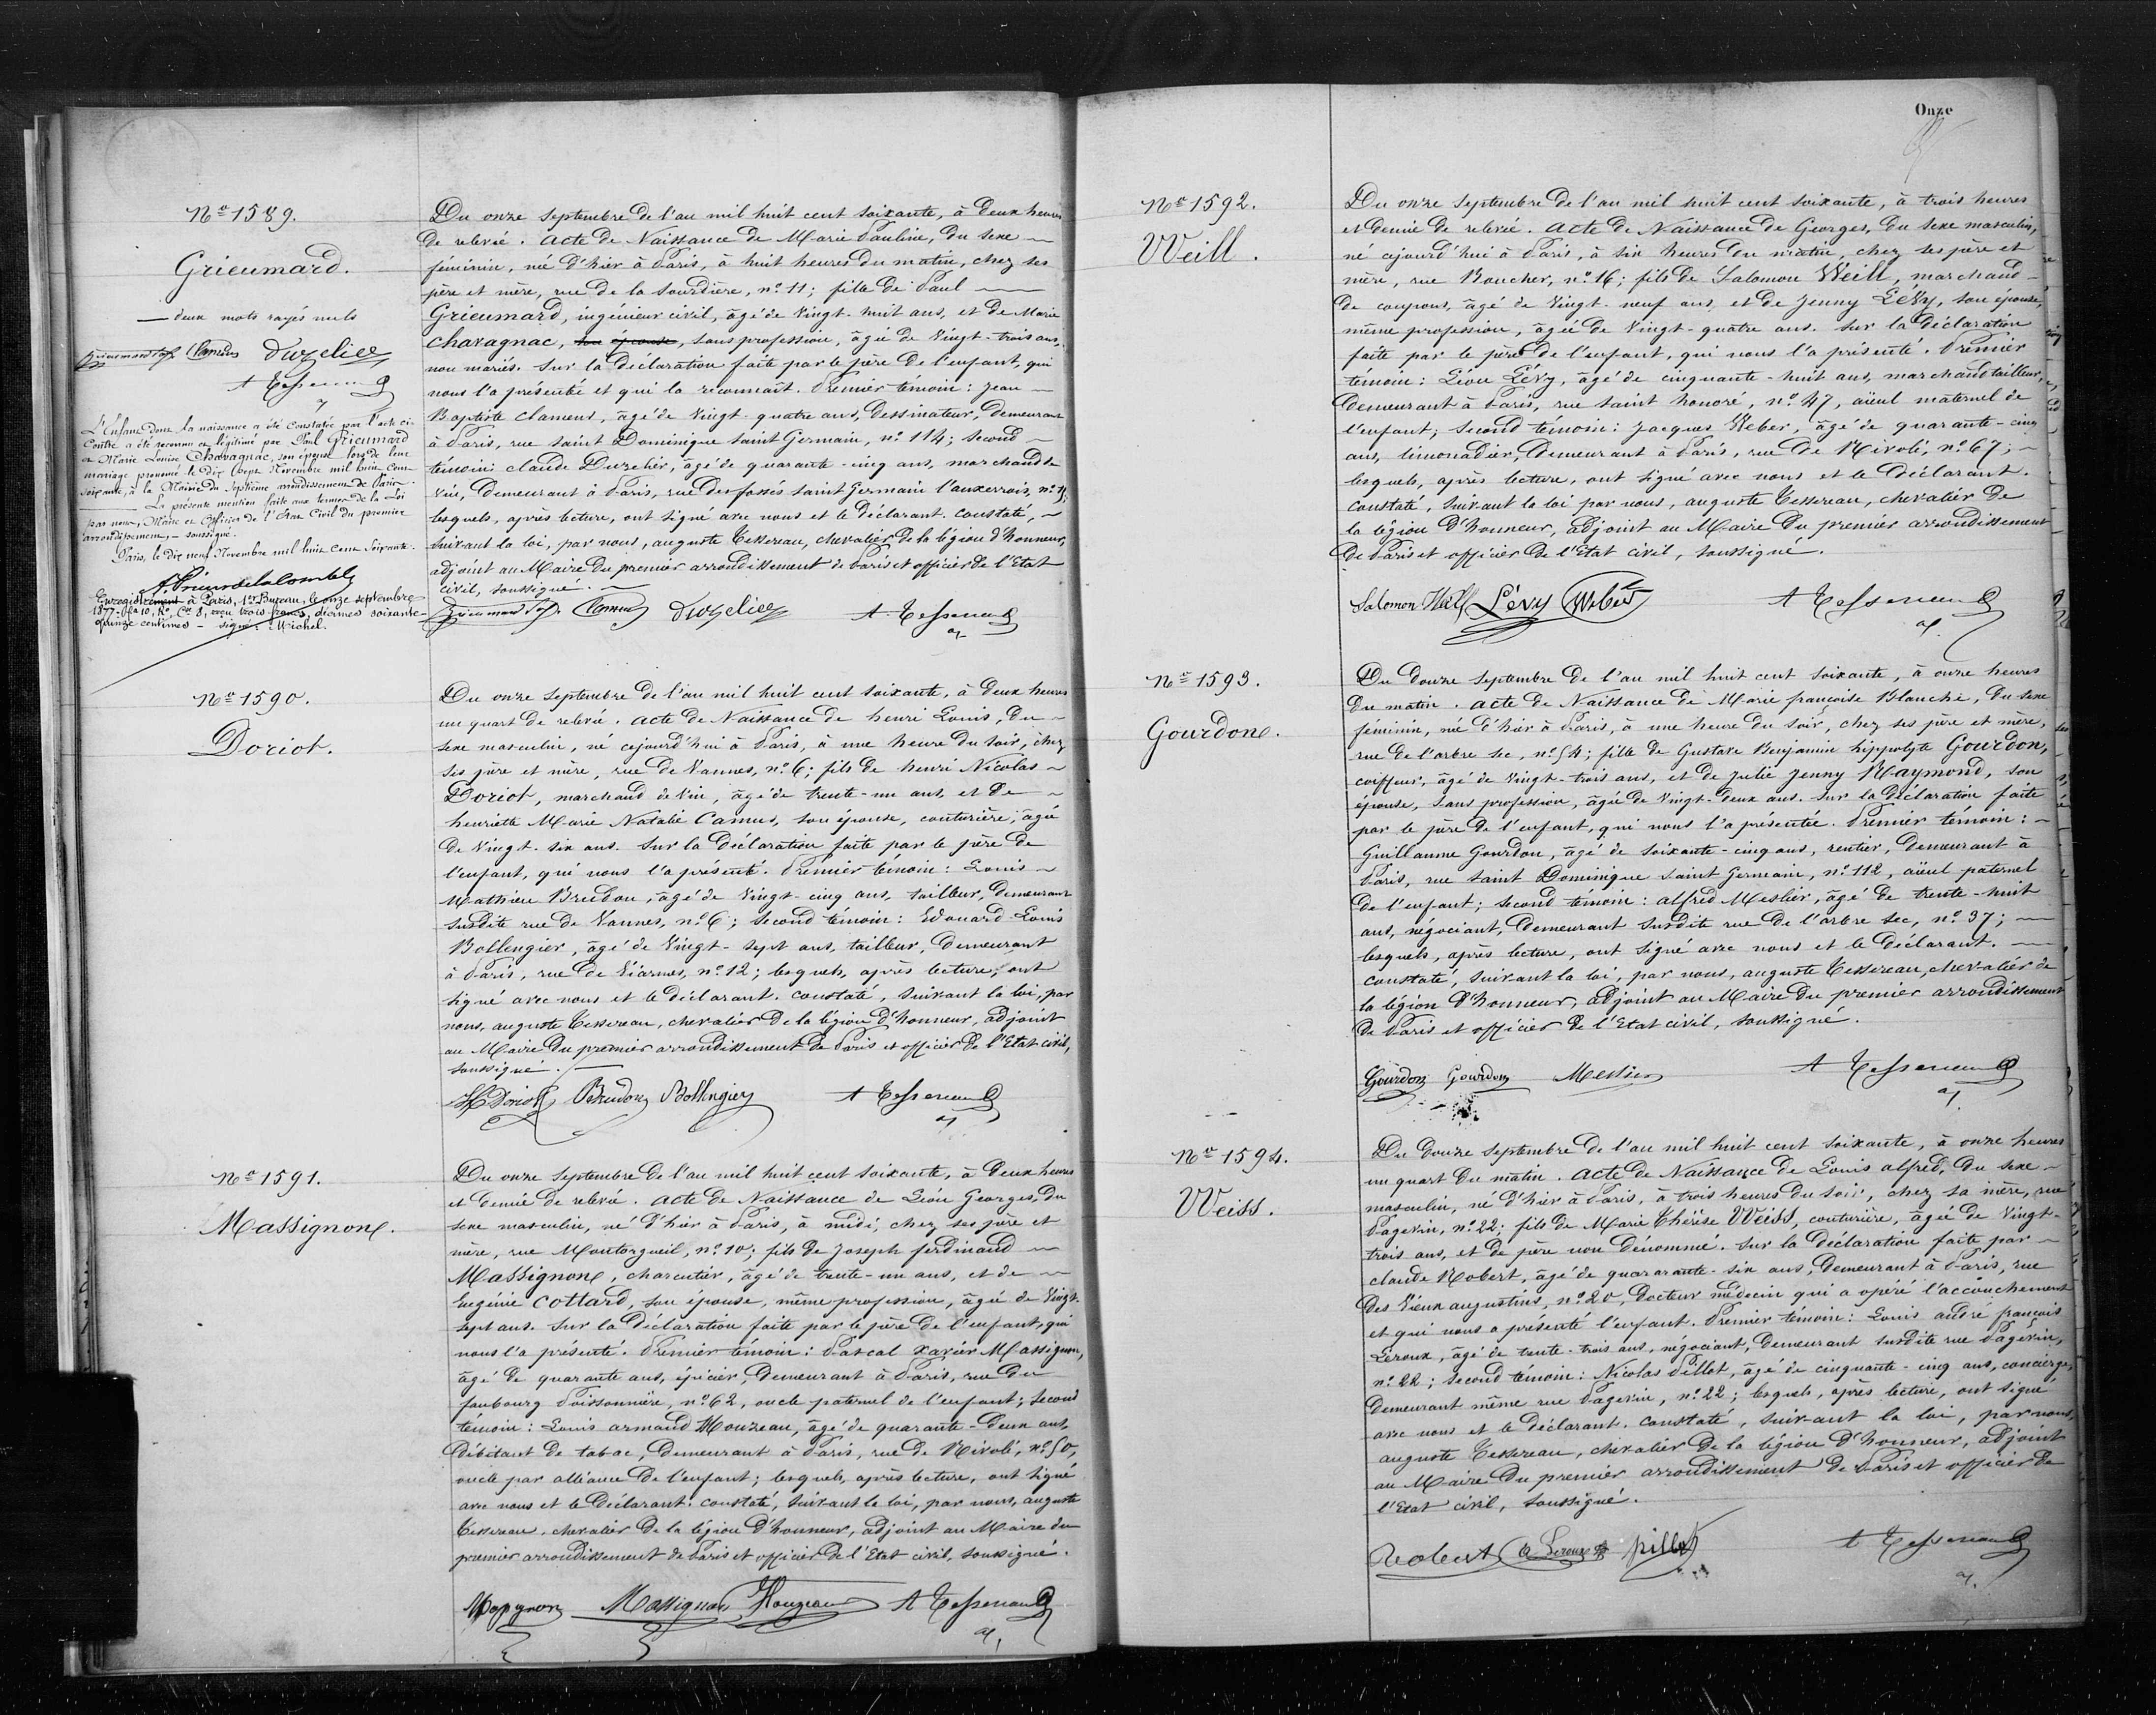 N° 1589.
Grieumard.
— deux mots rayés nuls
L'Enfant dont la naissance a été constatée par l'acte ci-
Contre a été reconnu et légitimé par Paul Grieumard
et Marie Louise Chavagnac, son épouse lors de leur
mariage prononcé le dix sept Novembre mil huit cent
soixante, à la Mairie du septième arrondissement de Paris.
La présente mention faite aux termes de la Loi
par nous, Maire et Officier de l'Etat Civil du premier
arrondissement, - soussigné.
Paris, le dix neuf Novembre mil huit cent soixante.
Enregistrement à Paris, 1er Bureau, le onze septembre
1877. f° 10, R°, Ce 8, reçu trois francs, décimes soixante-
quinze centimes - signé : Michel.
Du onze Septembre de l'an mil huit cent soixante, à deux heures
de relevée. Acte de Naissance de Marie Pauline, du sexe
féminin, née d'hier à Paris, à huit heures du matin, chez ses
père et mère, rue de la Sourdière, n° 11; fille de Paul
Grieumard, ingénieur civil, âgé de vingt-huit ans, et de Marie
Chavagnac, son épouse, sans profession, âgée de vingt-trois ans,
non mariés. Sur la déclaration faite par le père de l'enfant, qui
nous l'a présenté et qui la reconnaît. Premier témoin : Jean
Baptiste Clamens, âgé de vingt-quatre ans, dessinateur, demeurant
à Paris, rue Saint Dominique Saint Germain, n° 114; second
témoin: Claude Duzelier, âgé de quarante-cinq ans, marchand de
vin, demeurant à Paris, rue des fossés Saint Germain l'auxerrois, n°
lesquels, après lecture, ont signé avec nous et le déclarant. Constaté,
suivant la loi, par nous, auguste Tessereau, chevalier de la légion d'honneur,
adjoint au Maire du premier arrondissement de Paris et officier de l'Etat
civil, soussigné.
Grieumard Clamens Duzelier A Tessereau
N° 1590.
Doriot.
Du onze Septembre de l'an mil huit cent soixante, à deux heures
un quart de relevée. Acte de Naissance de henri Louis, du
sexe masculin, né cejourd'hui à Paris, à une heure du soir, chez
ses père et mère, rue de Vannes, n° 6; fils de henri Nicolas
Doriot, marchand de vin, âgé de trente-un ans, et de
henriette Marie Natalie Camus, son épouse, couturière, âgée
de vingt-six ans. Sur la déclaration faite par le père de
l'enfant, qui nous l'a présenté. Premier témoin: Louis
Mathieu Breudon, âgé de vingt-cinq ans, tailleur, demeurant
susdite rue de Vannes, n° 6; second témoin: Edouard Louis
Bollengier, âgé de vingt-sept ans, tailleur, demeurant
à Paris, rue de Viarmes, n° 12; lesquels, après lecture, ont
signé avec nous et le déclarant. Constaté, suivant la loi, par
nous, auguste Tessereau, chevalier de la légion d'honneur, adjoint
au Maire du premier arrondissement de Paris et officier de l'Etat civil,
soussigné.
H Doriot Breudon Bollengier A Tessereau
N° 1591.
Massignon.
Du onze Septembre de l'an mil huit cent soixante, à deux heures
et demie de relevée. Acte de Naissance de Léon Georges, du
sexe masculin, né d'hier à Paris, à midi, chez ses père et
mère, rue Montorgueil, n° 10; fils de Joseph ferdinand
Massignon, charcutier, âgé de trente-un ans, et de
Eugénie Cottard, son épouse, même profession, âgée de vingt-
sept ans. Sur la déclaration faite par le père de l'enfant, qui
nous l'a présenté. Premier témoin: Pascal Xavier Massignon,
âgé de quarante ans, épicier, demeurant à Paris, rue du
faubourg Poissonnière, n° 62, oncle paternel de l'enfant; second
témoin: Louis armand Houzeau, âgé de quarante-deux ans,
débitant de tabac, demeurant à Paris, rue de Rivoli, n° 50,
oncle par alliance de l'enfant; lesquels, après lecture, ont signé
avec nous et le déclarant. Constaté, suivant la loi, par nous, auguste
Tessereau, chevalier de la légion d'honneur, adjoint au Maire du
premier arrondissement de Paris et officier de l'Etat civil, soussigné.
Massignon Massignon Houzeau A Tessereau
Onze
N° 1592.
Weill.
Du onze Septembre de l'an mil huit cent soixante, à trois heures
et demie de relevée. Acte de Naissance de Georges, du sexe masculin,
né cejourd'hui à Paris, à six heures du matin, chez ses père et
mère, rue Boucher, n° 16; fils de Salomon Weill, marchand
de coupons, âgé de vingt-neuf ans, et de Jenny Lévy, son épouse,
même profession, âgée de vingt-quatre ans. Sur la déclaration
faite par le père de l'enfant, qui nous l'a présenté. Premier
témoin: Léon Lévy, âgé de cinquante-huit ans, marchand tailleur,
demeurant à Paris, rue Saint honoré, n° 47, aïeul maternel de
l'enfant; second témoin: Jacques Weber, âgé de quarante-cinq
ans, limonadier, demeurant à Paris, rue de Rivoli, n° 67;
lesquels, après lecture, ont signé avec nous et le déclarant.
Constaté, suivant la loi par nous, auguste Tessereau, chevalier de
la légion d'honneur, adjoint au Maire du premier arrondissement
de Paris et officier de l'Etat civil, soussigné.
Salomon Weill Lévy Weber A Tessereau
N° 1593.
Gourdon.
Du douze Septembre de l'an mil huit cent soixante, à onze heures
du matin. Acte de Naissance de Marie françoise Blanche, du sexe
féminin, née d'hier à Paris, à une heure du soir, chez ses père et mère,
rue de l'arbre sec, n° 54; fille de Gustave Benjamin hippolyte Gourdon,
coiffeur, âgé de vingt-trois ans, et de Julie Jenny Raymond, son
épouse, sans profession, âgée de vingt-deux ans. Sur la déclaration faite
par le père de l'enfant, qui nous l'a présentée. Premier témoin:
Guillaume Gourdon, âgé de soixante-cinq ans, rentier, demeurant à
Paris, rue Saint Dominique Saint Germain, n° 112, aïeul paternel
de l'enfant; second témoin: alfred Meslier, âgé de trente-huit
ans, négociant, demeurant susdite rue de l'arbre sec, n° 37;
lesquels, après lecture, ont signé avec nous et le déclarant.
Constaté, suivant la loi, par nous, auguste Tessereau, chevalier de
la légion d'honneur, adjoint au Maire du premier arrondissement
de Paris et officier de l'Etat civil, soussigné.
Gourdon Gourdon Meslier A Tessereau
N° 1594.
Weiss.
Du douze Septembre de l'an mil huit cent soixante, à onze heures
un quart du matin. Acte de Naissance de Louis alfred, du sexe
masculin, né d'hier à Paris, à trois heures du soir, chez sa mère, rue
Pagevin, n° 22; fils de Marie Thérèse Weiss, couturière, âgée de vingt-
trois ans, et de père non dénommé. Sur la déclaration faite par
claude Robert, âgé de quararante-six ans, demeurant à Paris, rue
des Vieux augustins, n° 20, docteur médecin qui a opéré l'accouchement
et qui nous a présenté l'enfant. Premier témoin: Louis andré françois
Leroux, âgé de trente-trois ans, négociant, demeurant susdite rue Pagevin,
n° 22; second témoin: Nicolas Pillot, âgé de cinquante-cinq ans, concierge,
demeurant même rue Pagevin, n° 22; lesquels, après lecture, ont signé
avec nous et le déclarant. Constaté, suivant la loi, par nous,
auguste Tessereau, chevalier de la légion d'honneur, adjoint
au Maire du premier arrondissement de Paris et officier de
l'Etat civil, soussigné.
Robert Leroux Pillot A Tessereau